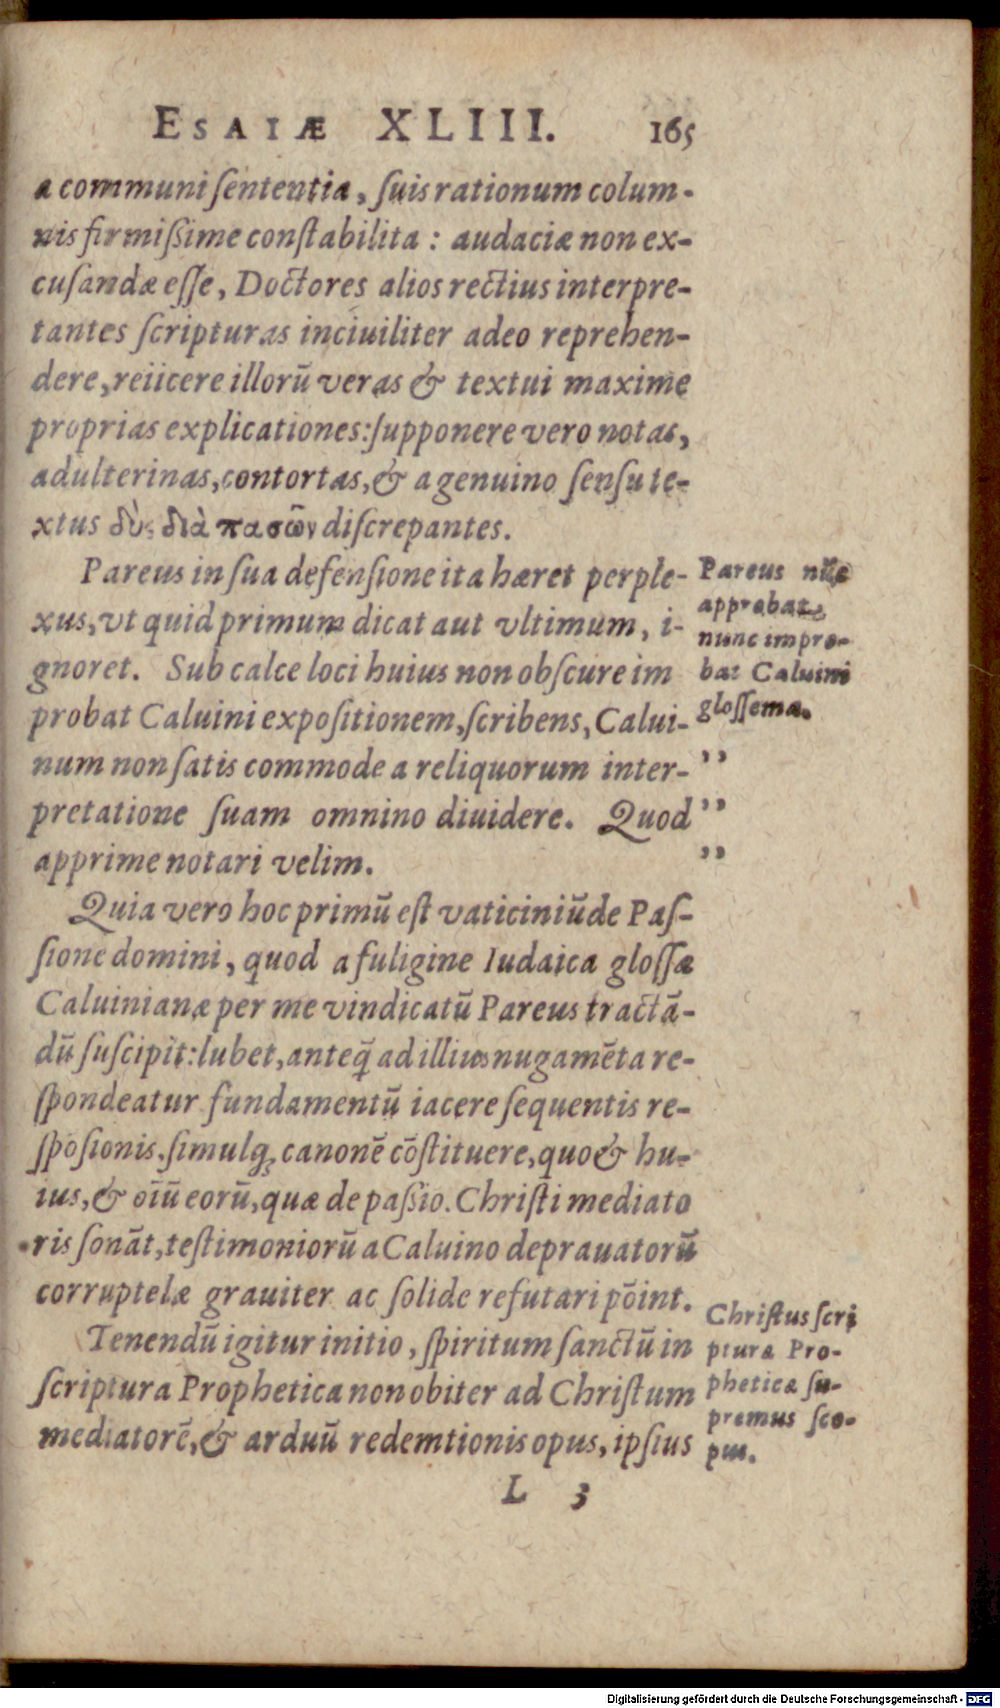 ESAIÆ XLIII. 165
a communi ſententia, ſuis rationum colum-
nis firmißime conſtabilita : audaciæ non ex-
cuſandæ eſſe, Doctores alios rectius interpre-
tantes ſcripturas inciuiliter adeo reprehen-
dere, reiicere illorū veras & textui maxime
proprias explicationes: ſupponere vero notas,
adulterinas, contortas, & a genuino ſenſu te-
xtus δὺς διὰ πασῶν diſcrepantes.
Pareus in ſua defenſione ita hæret perple-
xus, vt quid primum dicat aut vltimum, i-
gnoret. Sub calce loci huius non obſcure im
probat Caluini expoſitionem, ſcribens, Calui-
num non ſatis commode a reliquorum inter-
pretatione ſuam omnino diuidere. Quod
apprime notari velim.
Pareus nūc
approbat,
nunc impro-
bat Caluini
gloſſema.
,,
,,
,,
Quia vero hoc primū eſt vaticiniū de Paſ-
ſione domini, quod a fuligine Iudaica gloſſæ
Caluinianæ per me vindicatū Pareus tractā-
dū ſuſcipit: lubet, anteq̃ ad illius nugamēta re-
ſpondeatur fundamentū iacere ſequentis re-
ſpōſionis, ſimulq; canonē cōſtituere, quo & hu-
ius, & oīū eorū, quæ de paßio. Chriſti mediato
ris ſonāt, teſtimoniorū a Caluino deprauatorū
corruptelæ grauiter ac ſolide refutari pōint.
Tenendū igitur initio, ſpiritum ſanctū in
ſcriptura Prophetica non obiter ad Chriſtum
mediatorē, & arduū redemtionis opus, ipſius
Chriſtus ſcri
pturæ Pro-
pheticæ ſu-
premus ſco-
pus.
L 3
Digitalisierung gefördert durch die Deutsche Forschungsgemeinschaft - DFG